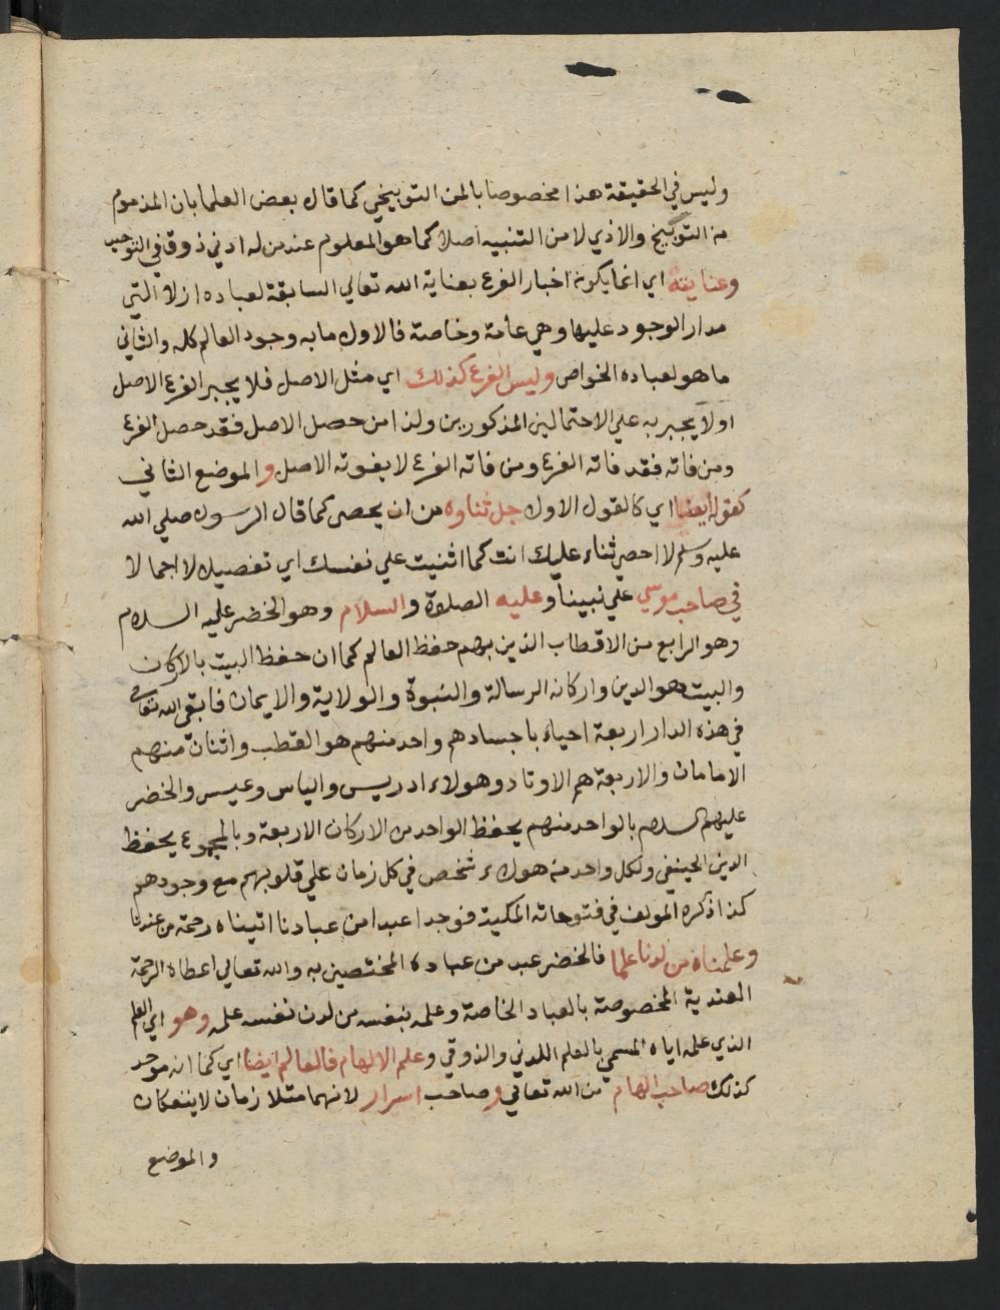 وليس في الحقيقة هذا مخصوصا بالمن التوبيخي كما قال بعض العلما بان المذموم
من التوبيخ والاذي لا من التنبيه اصلا كما هو المعلوم عند من له ادني ذوق في التوحيد
وعنايته اي انما يكون اخبار الفرع بعناية الله تعالي السابقة لعباده ازلا التي
مدار الوجود عليها وهي عامة وخاصة فالاول ما به وجود العالم كله والثاني
ما هو لعباده الخواص وليس الفرع كذلك اي مثل الاصل فلا يجبر الفرع الاصل
اولا يجبر به علي الاحتمالين المذكورين ولذا من حصل الاصل فقد حصل الفرع
ومن فاته فقد فاته الفرع ومن فاته الفرع لا يفوته الاصل والموضع الثاني
كقوله ايضا اي كالقول الاول جل ثناوه من ان يحصي كما قال الرسول صلي الله
عليه وسلم لا احصي ثناء عليك انت كما اثنيت علي نفسك اي تفصيلا لا اجمالا
في صاحب موسي علي نبينا وعليه الصلوة والسلام وهو الخضر عليه السلام
وهو الرابع من الاقطاب الذين بهم حفظ العالم كما ان حفظ البيت بالاركان
والبيت هو الدين واركانه الرسالة والنبوة والولاية والايمان فابقي الله تعالي
في هذه الدار اربعة احياء باجسادهم واحد منهم هو القطب واثنان منهم
الامامان والاربعة هم الاوتاد وهولاء ادريس والياس وعيسي والخضر
عليهم السلام بالواحد منهم يحفظ الواحد من الاركان الاربعة وبالمجموع يحفظ
الدين الحنيفي ولكل واحد من هولاء شخص في كل زمان علي قلوبهم مع وجودهم
كذا ذكره المولف في فتوحاته المكية فوجدا عبدا من عبادنا اتيناه رحمة من عندنا
وعلمناه من لدنا علما فالخضر عبد من عباده المختصين به والله تعالي اعطاه الرحمة
العندية المخصوصة بالعباد الخاصة وعلمه بنفسه من لدن نفسه علمه وهو اي العلم
الذي علمه اياه المسمي بالعلم اللدني والذوقي وعلم الالهام فالعالم ايضا اي كما انه موحد
كذلك صاحب الهام من الله تعالي وصاحب اسرار لانهما متلازمان لا ينفكان
والموضع